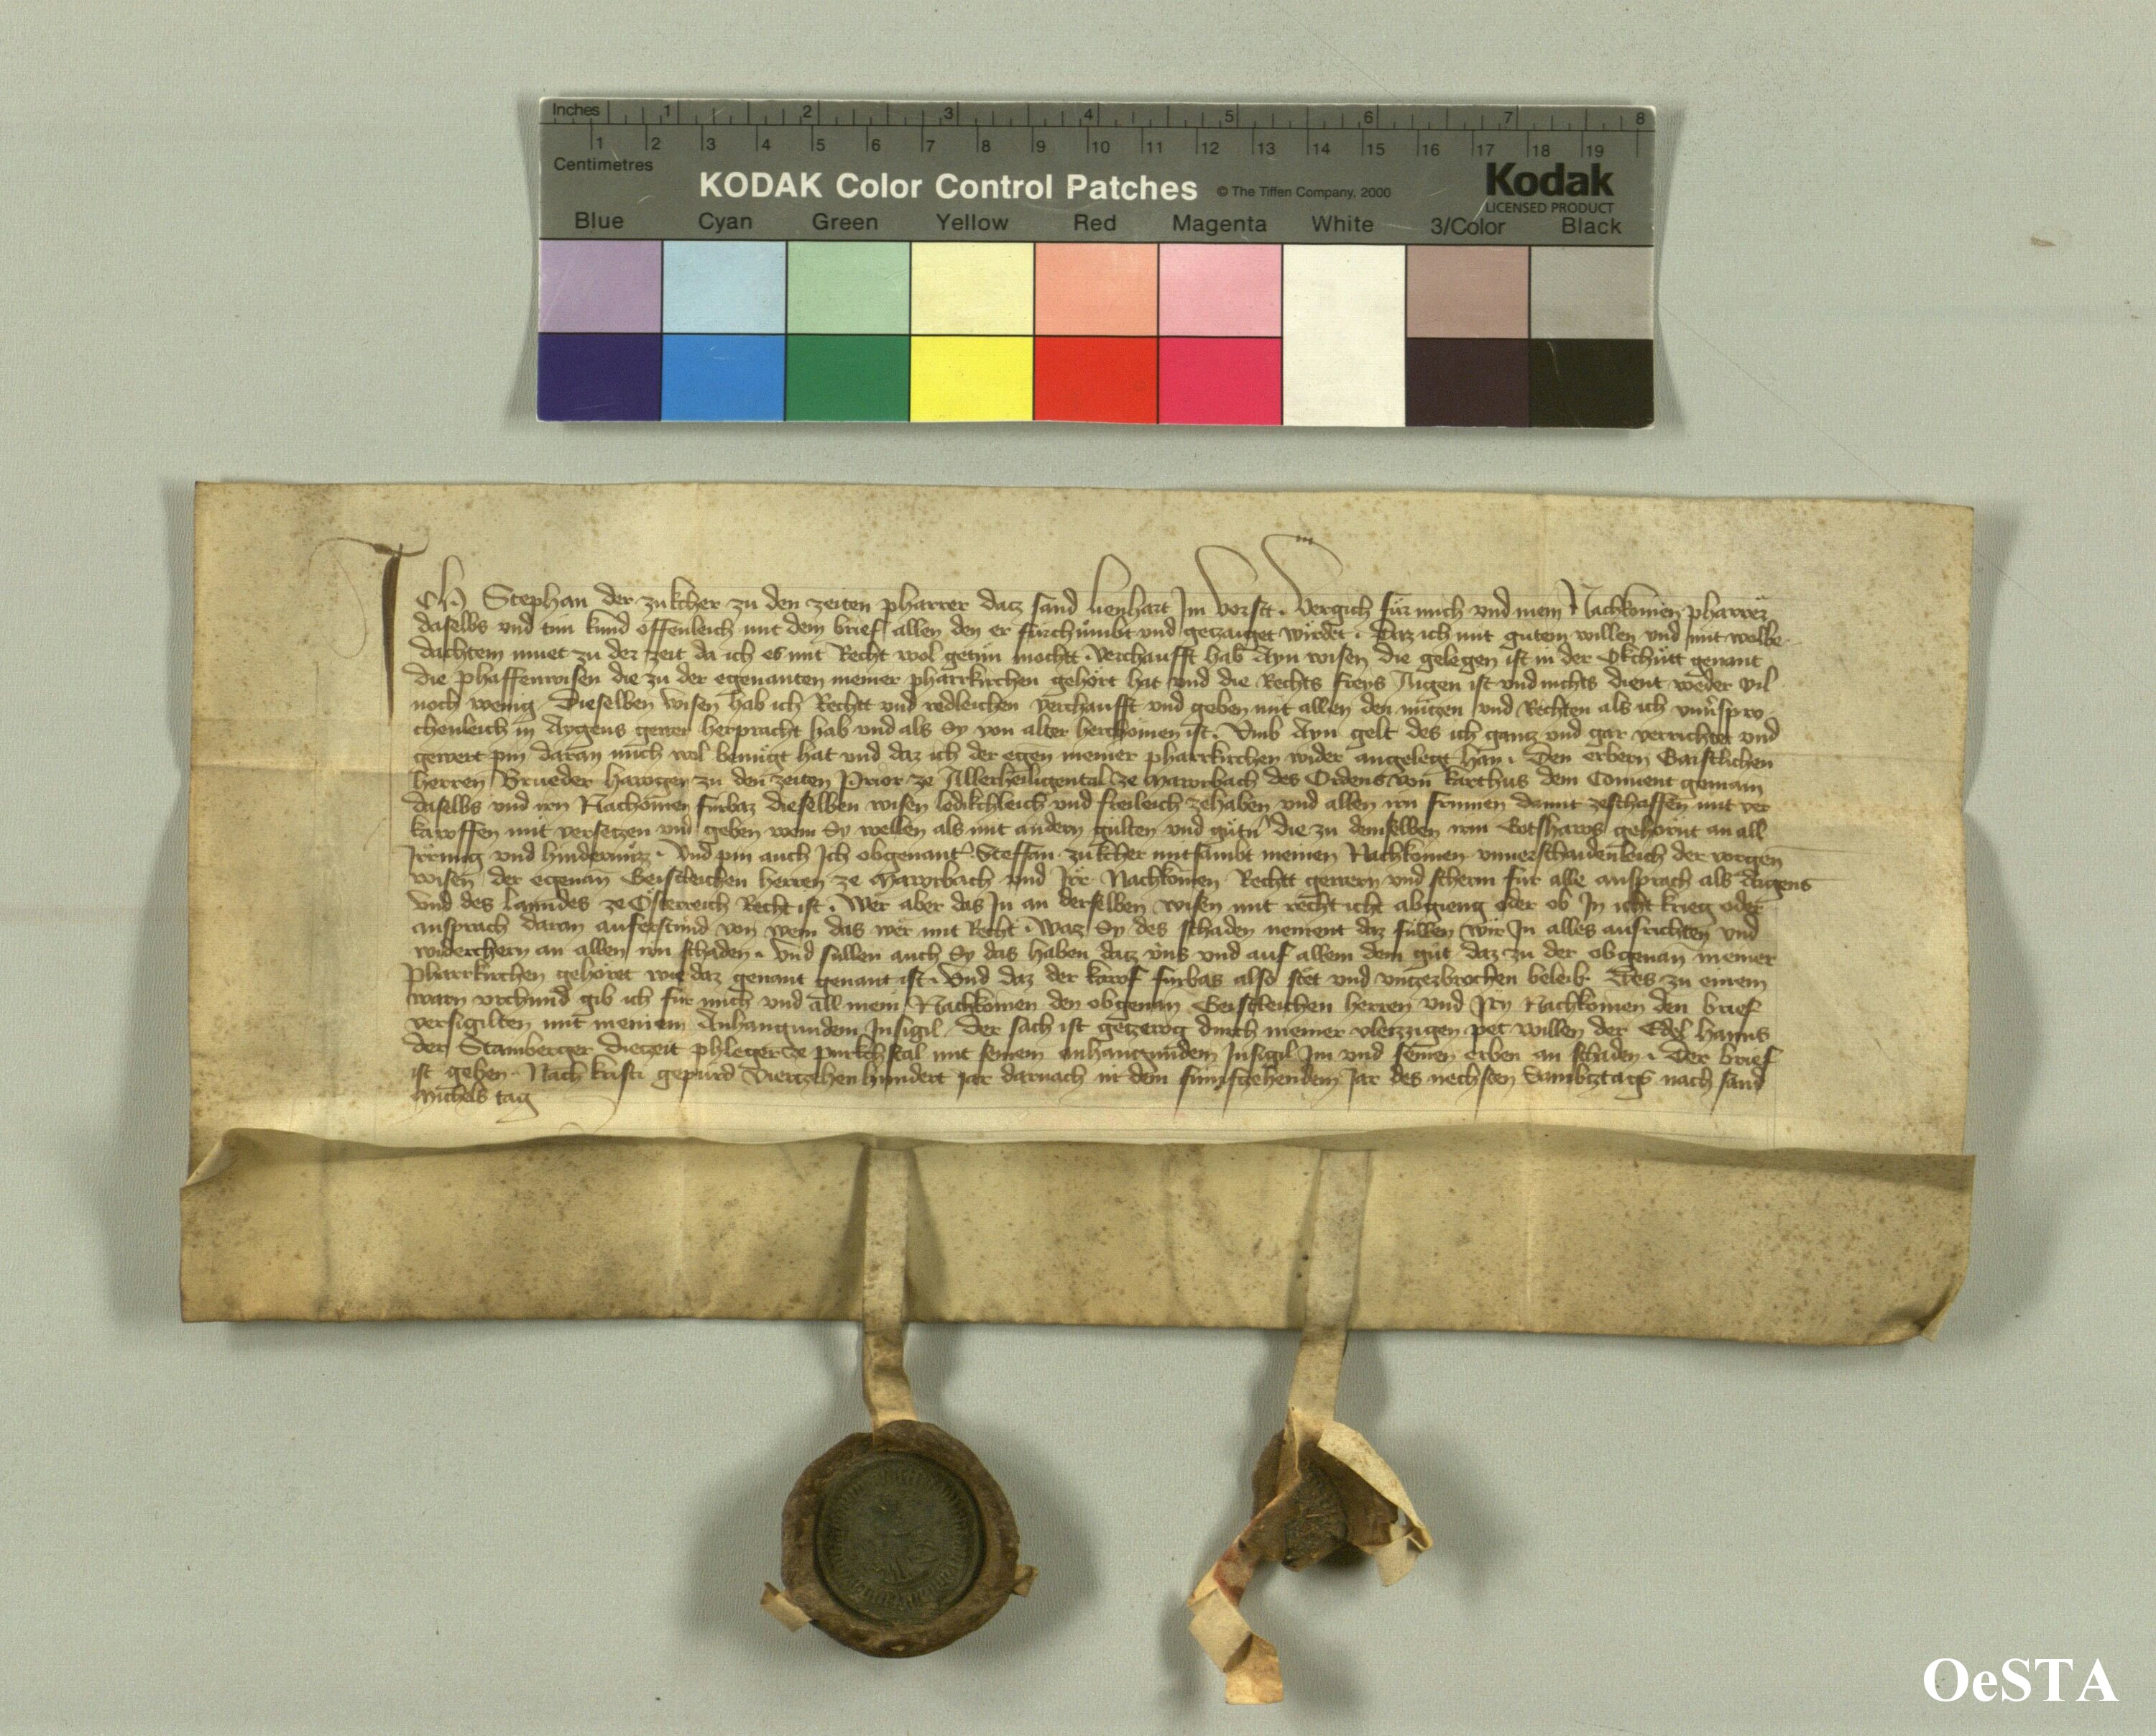 Inches 1 2 3 4 5 6 7 8
1 2 3 4 5 6 7 8 9 10 11 12 13 14 15 16 17 18 19
Centimetres
KODAK Color Control Patches © The Tiffen Company, 2000 Kodak
LICENSED PRODUCT
Blue Cyan Green Yellow Red Magenta White 3/Color Black
Ich Stephan der zukcher zu den zeiten pharrer dacz sand lienhart Im vorstt. Vergich für mich und mein Nachkomen pharrer
daselbs und tun kund offenleich mit dem brief allen den er fürchumbt und getzaiget wirdet. Daz ich mit gutem willen und mit wolbe
dachtem muet zu der zeit da ich es mit Recht wol getun mocht. Verchaufft hab Ayn wisen die gelegen ist in der genant
die phaffenwisen die zu der egenanten meiner pharrkirchen gehört hat und die Rechts freys Aigen ist und nichts dient weder vil
noch wenig. Dieselben wisen hab ich Recht und redleichen verchaufft und geben mit allen den nützen und Rechten als ich unuerspro
chenleich in Aygens gewer herpracht hab und als Sy von alter herchomen ist. Umb Ayn gelt des ich gancz und gar verrichtet und
gewert pin daran mich wol benügt hat und daz ich der egen meiner pharrkirchen wider angelegt han. Den erbern Gaistlichen
herren Brueder hartwigen zu den zeiten Prior ze Allerheiligental ze Mawrbach des Ordens von karthus dem Conuent gemain
daselbs und irn Nachomen fürbaz dieselben wisen ledikchleich und freileich zehaben und allen irn frumen damit zeschaffen mit ver
kawffen mit versetzen und geben wem Sy wellen als mit andern gülten und gütn die zu demselben irm Gotshaws gehornt an all
Irrung und hindernüz. Und pin auch Ich obgenant Steffan zukcher mitsambt meinen Nachkomen unuerschaidenleich der vorgen
wisen der egenan Geistleichen herren ze Mawrbach und Irr Nachkomen Rechtt gewern und scherm für alle ansprach als Aigens
und des Lanndes ze Österreich Recht ist. Wer aber das In an derselben wisen mit recht icht abgieng oder ob In icht krieg oder
ansprach daran auferstünd von wem das wer mit Recht. Waz Sy des schaden nement daz süllen wir In alles ausrichten und
widerchern an allen irn schaden. Und süllen auch Sy das haben dacz uns und auf allem dem gut daz zu der obgenan meiner
pharrkirchen gehöret wie daz genant genant ist. Und daz der kawf fürbas also stet und unczebrochen beleib. Des zu einem
warn urchund gib ich für mich und all mein Nachkomen den obgenan Geistleichen herren und Irn Nachkomen den brief
versigilten mit meinem Anhangundem Insigil. Der sach ist getzewg durch meiner vleizzigen pet willen der Edel Hanns
der Stamberger dieczeit phleger ze purkchstal mit seinem anhangundem Insigil Im und seinen erben an schaden. Der brief
ist geben Nach kristi gepurd Viertzehenhundert jar darnach in dem fumfczehendem Jar des nechsten Sambcztags nach sand
Michels tag
OeSTA